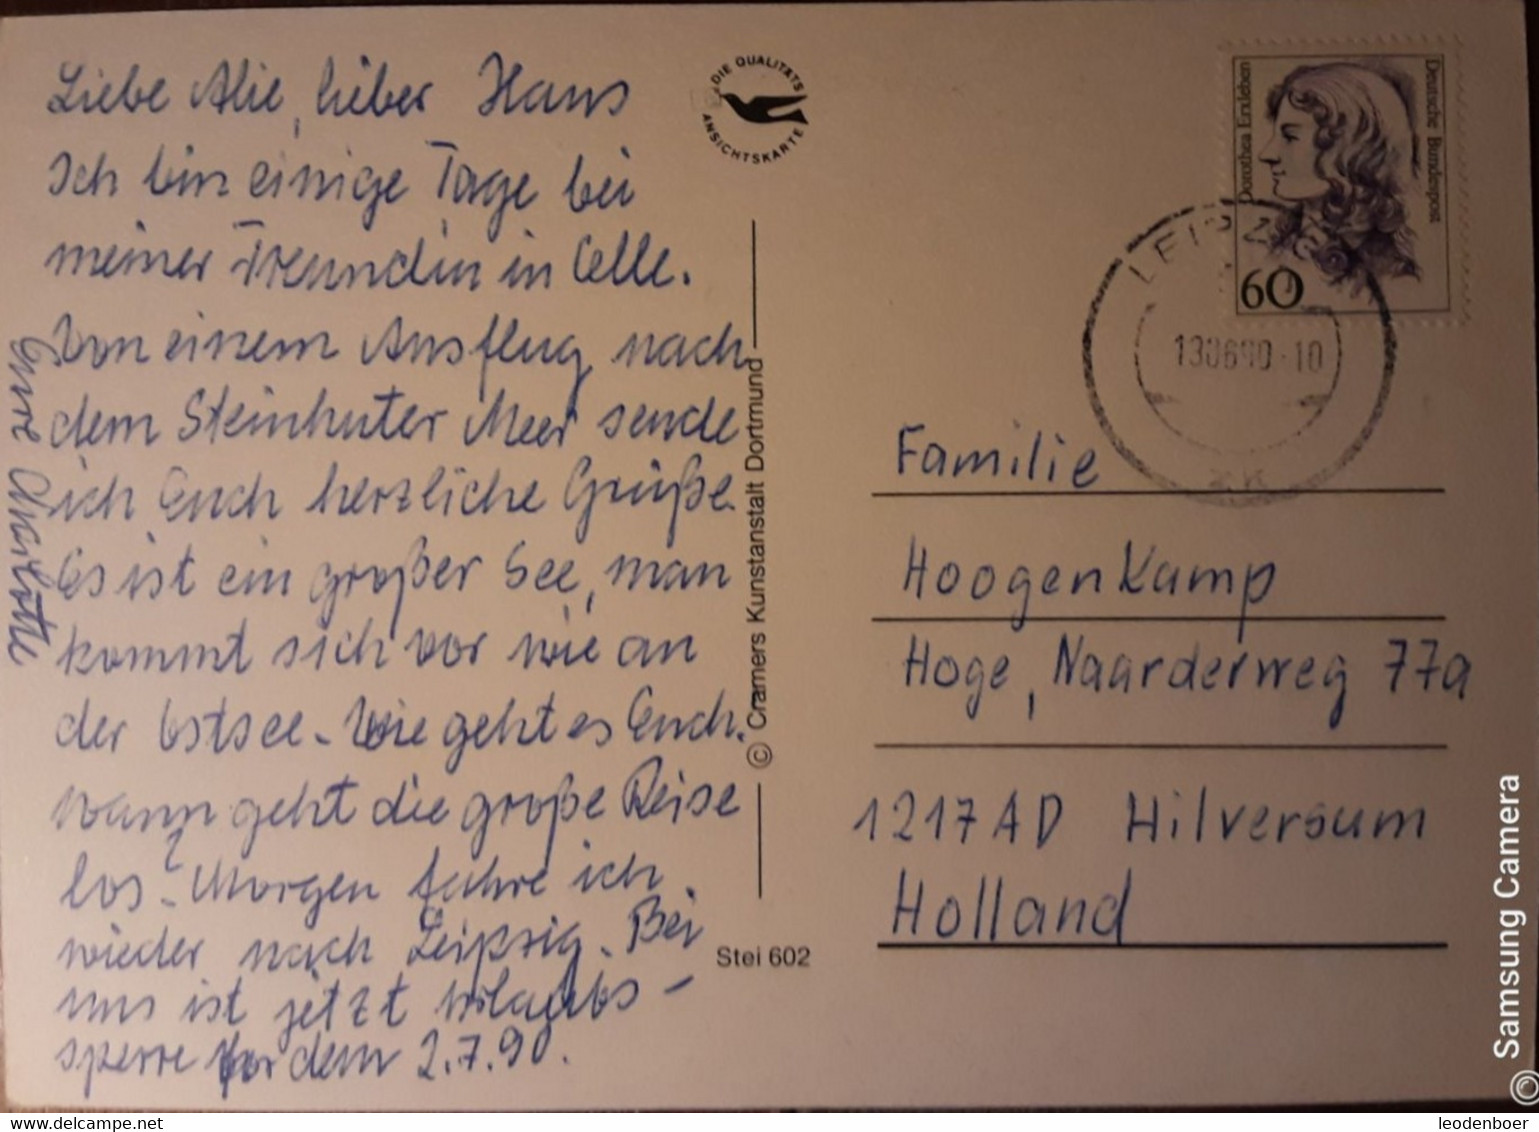 Liebe Alie, lieber Hans
Ich bin einige Tage bei
meiner Freundin in Celle.
Von einem Ausflug nach
dem Steinhuter Meer sende
ich Euch herzliche Grüße.
Es ist ein großer See, man
kommt sich vor wie an
der Ostsee. Wie geht es Euch.
Wann geht die große Reise
los? Morgen fahre ich
wieder nach Leipzig. Bei
uns ist jetzt Urlaubs-
sperre vor dem 2.7.90.
Eure Charlotte
DIE QUALITÄTS
ANSICHTSKARTE
© Cramers Kunstanstalt Dortmund
Stei 602
Dorothea Erxleben
Deutsche Bundespost
60
LEIPZIG
130690-10
Familie
Hoogenkamp
Hoge, Naarderweg 77a
1217 AD Hilversum
Holland
© Samsung Camera
delcampe.net
leodenboer